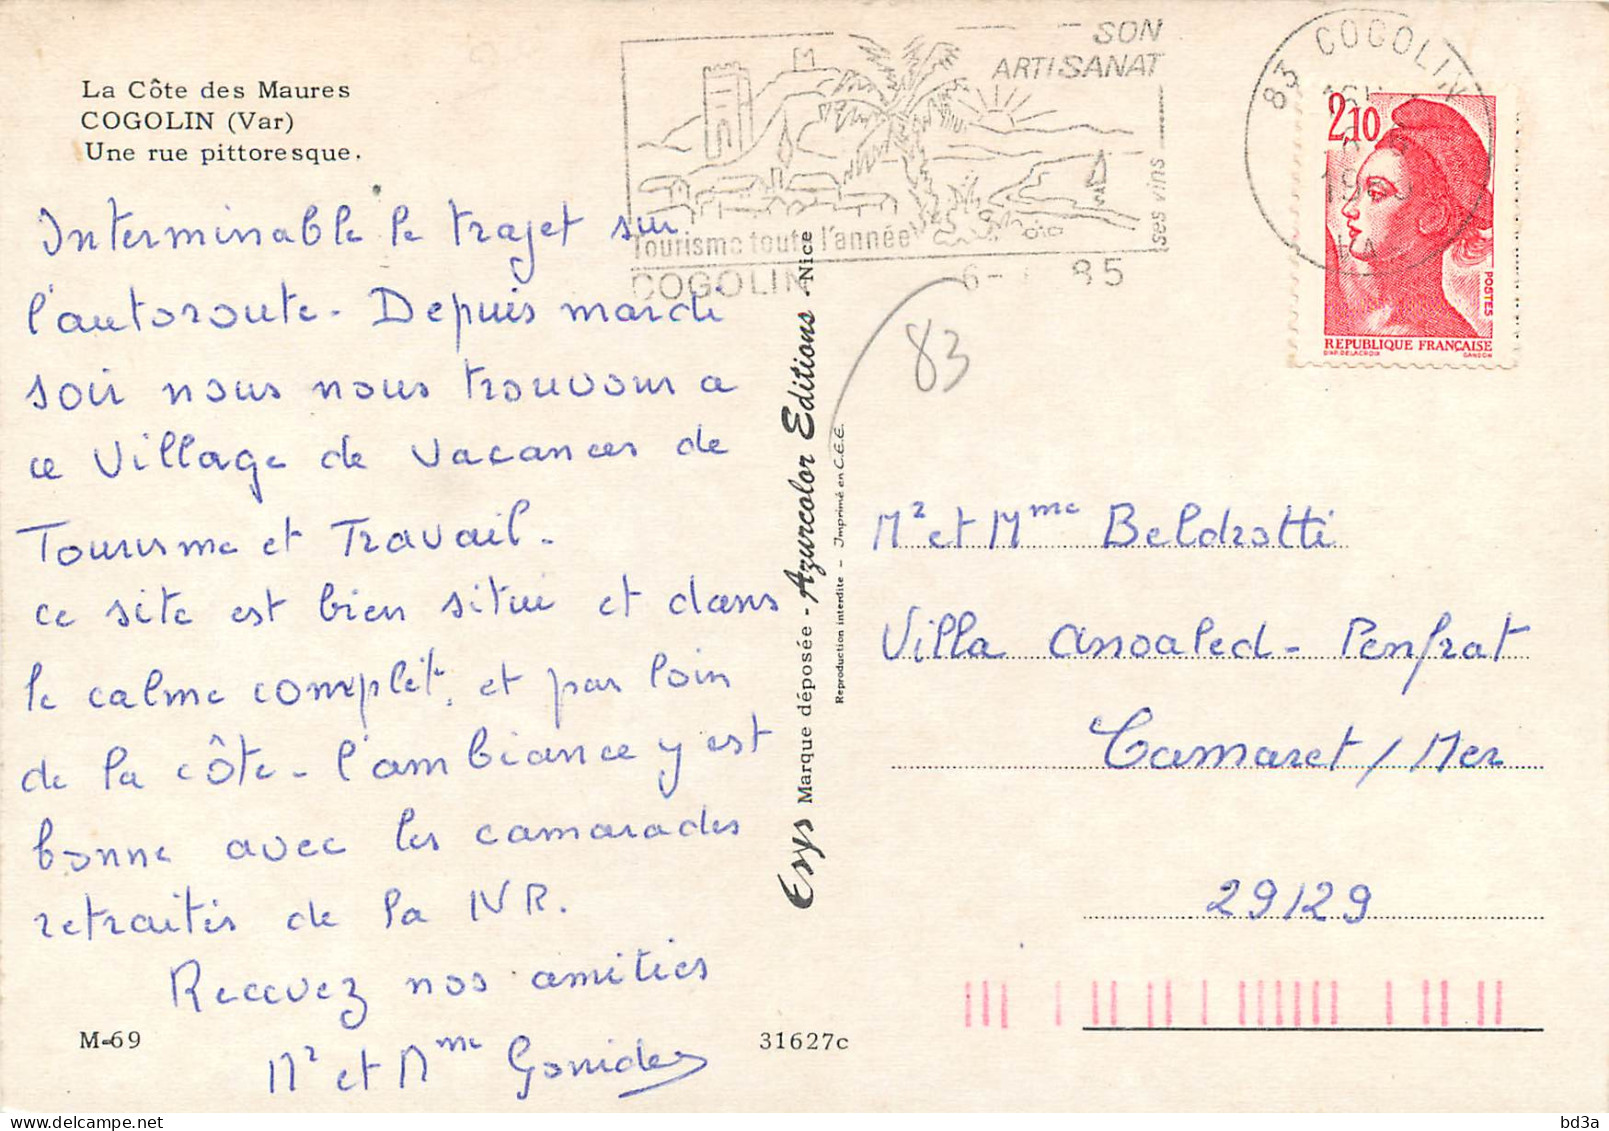 La Côte des Maures
COGOLIN (Var)
Une rue pittoresque.
SON
ARTISANAT
ses vins
Tourisme toute l'année
COGOLIN
85
83 COGOLIN
2,10
POSTES
REPUBLIQUE FRANÇAISE
D'AP. DELACROIX GANDON
83
Interminable le trajet sur
l'autoroute. Depuis mardi
soir nous nous trouvons a
ce Village de Vacances de
Tourisme et Travail.
ce site est bien situé et dans
le calme complet, et pas loin
de la côte. l'ambiance y est
bonne avec les camarades
retraités de la NR.
Recevez nos amitiés
Mr et Mme
Esys Marque déposée - Azurcolor Editions - Nice
Reproduction interdite - Imprimé en C.E.E.
Mr et Mme Beldrotti
Villa - Penfrat
Camaret / Mer
29129
M-69
31627c
bd3a